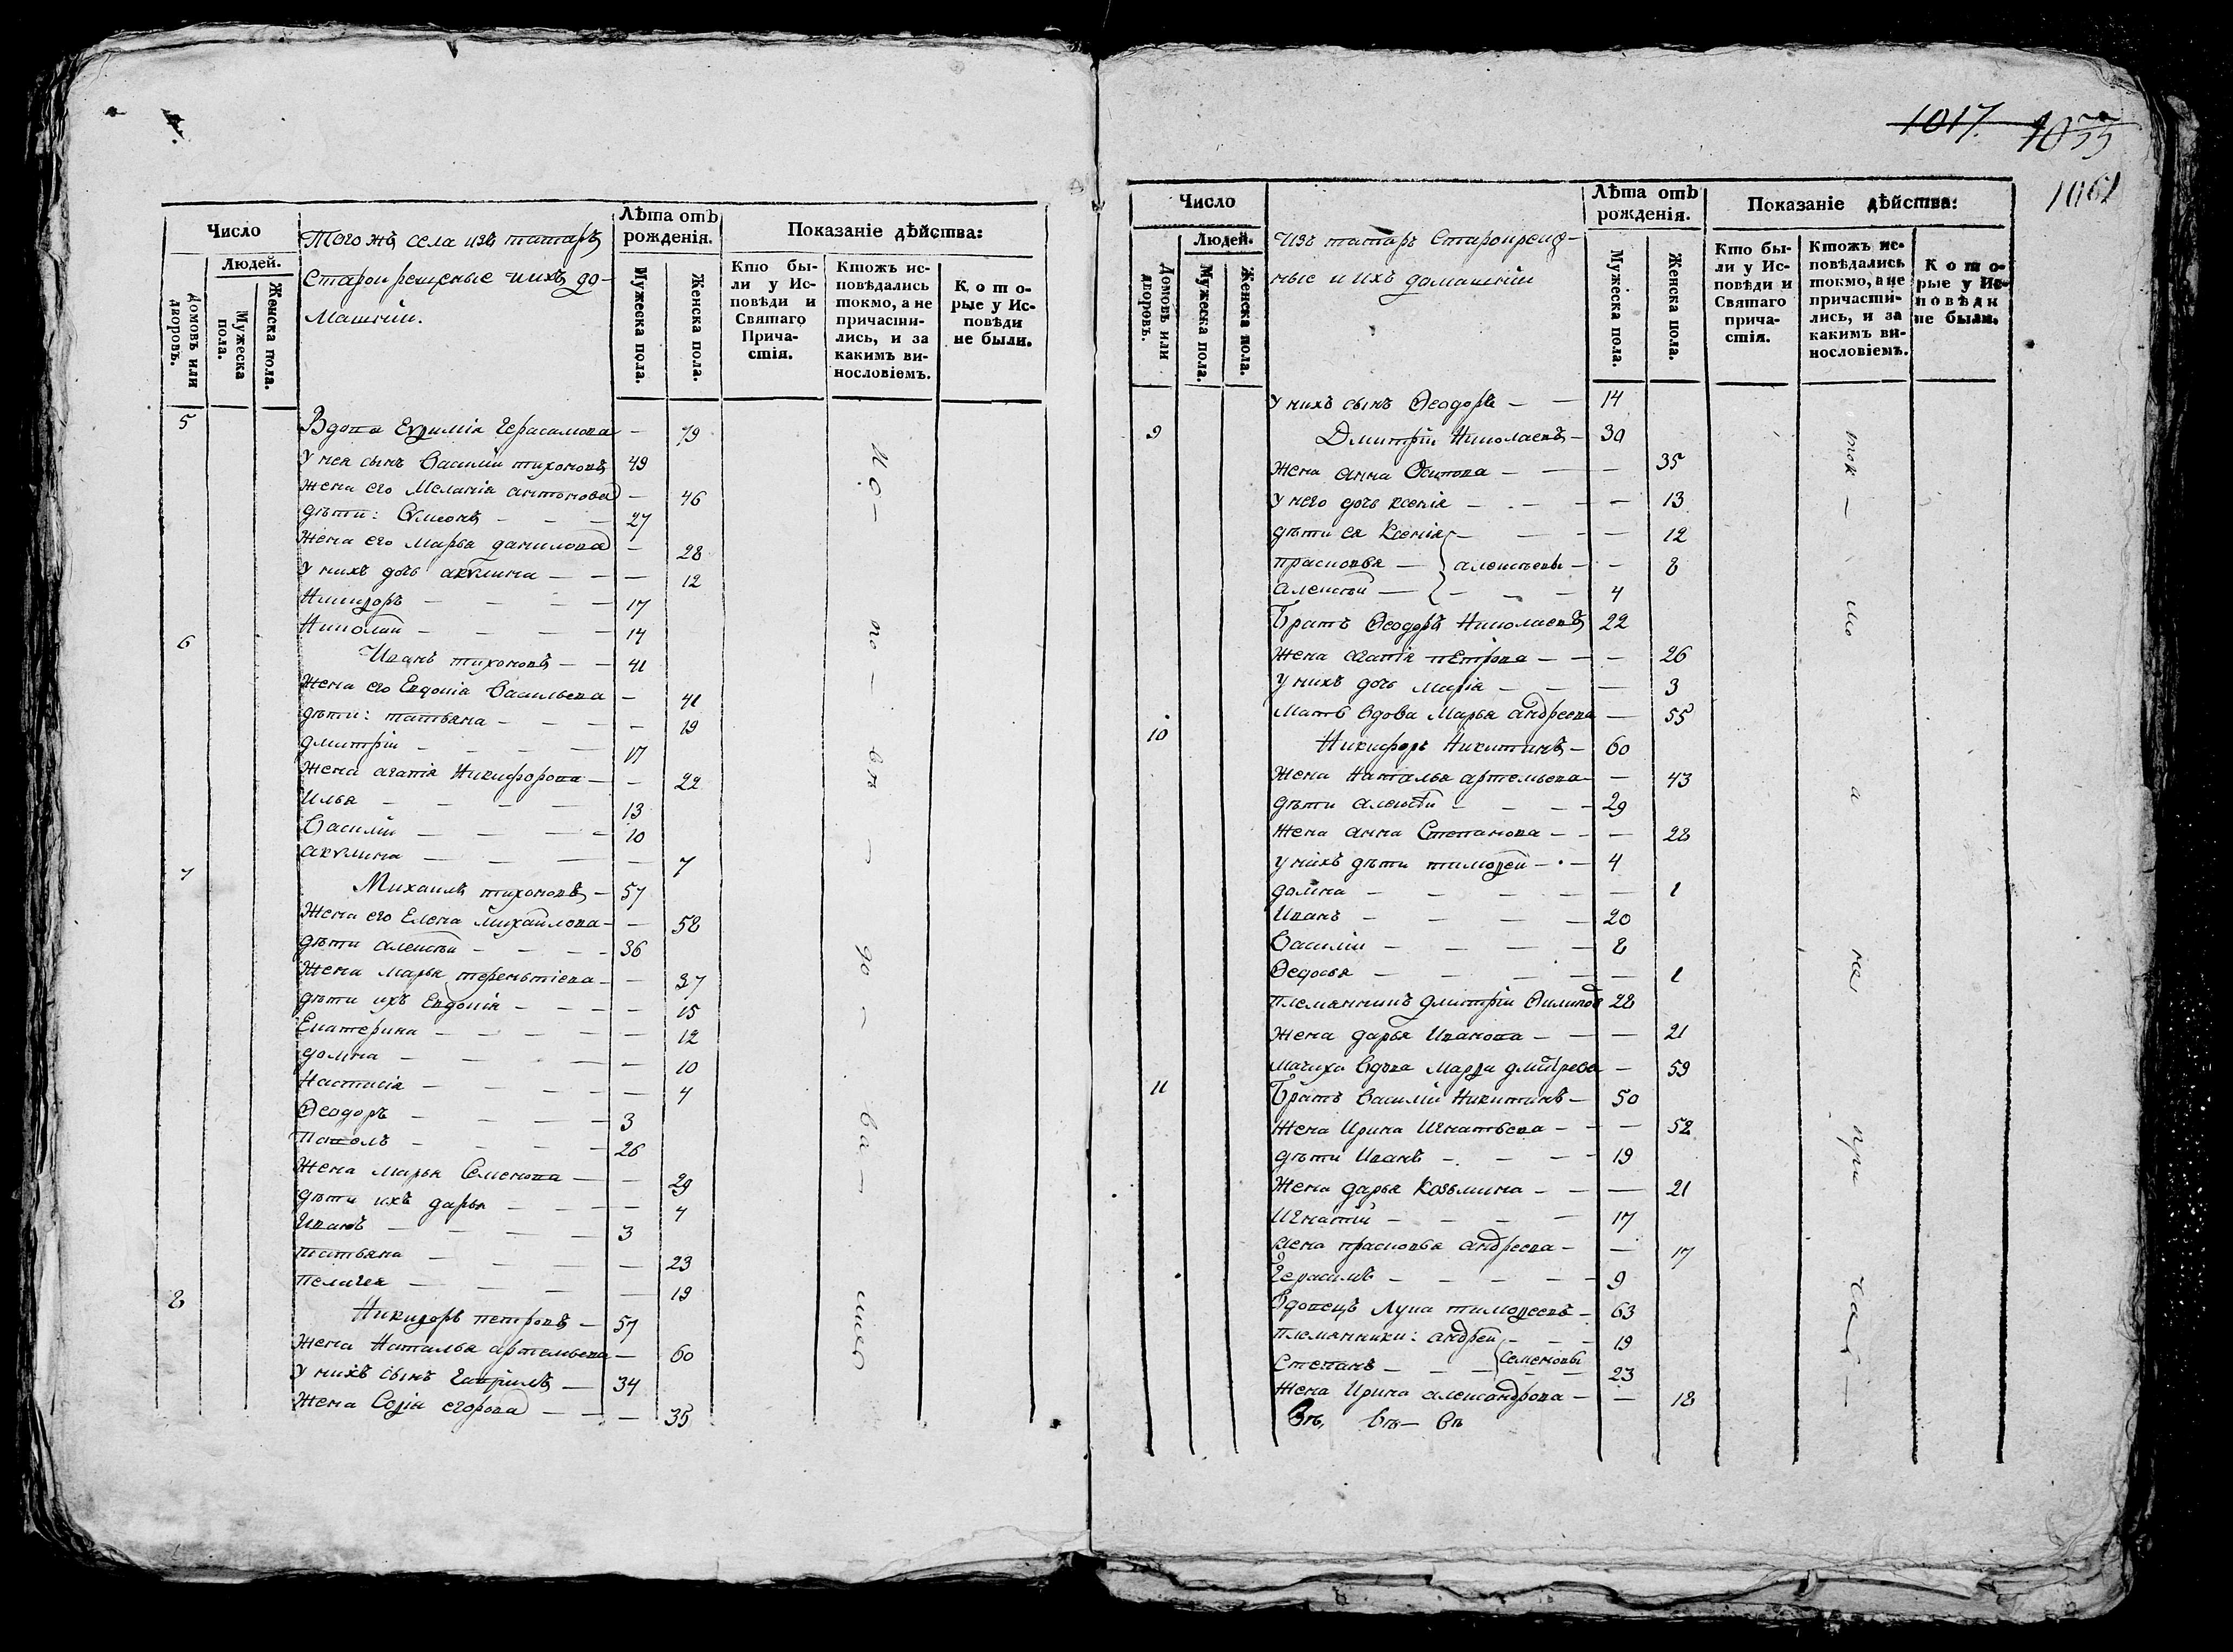 Число
Людей.
Домовъ или дворовъ.
Мужеска пола.
Женска пола.
Того жъ села изъ татаръ
Старокрещеные и ихъ до-
машнiи.
Лѣта отъ рожденія.
Мужеска пола.
Женска пола.
Показаніе дѣйства:
Кто бы-
ли у Ис-
повѣди и
Святаго
Прича-
стія.
Ктожъ ис-
повѣдались
токмо, а не
причасти-
лись, и за
какимъ ви-
нословіемъ.
Кото-
рые у Ис-
повѣди
не были.
5 Вдова Евѳимія Герасимова — 79
У нея сынъ Василій тихоновъ 49
жена его Меланія антонова — 46
дѣти: Сѵмеонъ — — — 27
жена его Марья данилова — 28
У нихъ дочь акѵлина — — — 12
Никиѳоръ — — — — 17
Николай — — — — 14
6 Иванъ тихоновъ — — 41
Жена его Евдокія Васильева — 41
дѣти: татьяна — — — — 19
дмитрій — — — — 17
Жена агапія Никифорова — — 22
Илья — — — — 13
Василій — — — — 10
акѵлина — — — — 7
7 Михаилъ тихоновъ — 57
Жена его Елена Михайлова — — 58
дѣти алексѣй — — — 36
Жена марья терентіева — — 37
дѣти ихъ Евдокія — — — — 15
Екатерина — — — — — 12
домна — — — — 10
Настасія — — — — 4
Ѳеодоръ — — — — 3
Павелъ — — — — 26
Жена марья Семенова — — 29
дѣти ихъ дарья — — — — 4
Иванъ — — — — 3
татьяна — — — — 23
пелагея — — — — 19
8 Никиѳоръ петровъ — 57
Жена Наталья артемьева — 60
У нихъ сынъ Гавріилъ — 34
Жена Соѳія егорова — — — 35
1017
1055
1061
Число
Людей.
Домовъ или дворовъ.
Мужеска пола.
Женска пола.
Изъ татаръ Старокреще-
ные и ихъ домашнiи
Лѣта отъ рожденія.
Мужеска пола.
Женска пола.
Показаніе дѣйства:
Кто бы-
ли у Ис-
повѣди и
Святаго
прича-
стія.
Ктожъ ис-
повѣдались
токмо, а не
причасти-
лись, и за
какимъ ви-
нословіемъ.
Кото-
рые у Ис-
повѣди
не были.
У нихъ сынъ Ѳеодоръ — — 14
9 Дмитрій Николаевъ — 30
жена анна Осипова — — — 35
У него дочь ксенія — — — — 13
дѣти ея Ксенія — — — — 12
прасковья — алексѣевы — — 8
алексѣй — — — — 4
Братъ Ѳеодоръ Николаевъ 22
Жена агапія петрова — — — 26
У нихъ дочь марія — — — 3
Мать вдова Марья андреева — 55
10 Никифоръ Никитинъ — 60
Жена Наталья артемьева — 43
дѣти алексѣй — — — 29
Жена анна Степанова — — — 28
У нихъ дѣти тимоѳей — — 4
домна — — — — — 1
Иванъ — — — — 20
Василій — — — — 8
Ѳедосья — — — — — 1
племянникъ дмитрій Филипов 28
Жена дарья Иванова — — — 21
мачиха вдова Марѳа дмитрева — 59
11 Братъ Василій Никитинъ — 50
Жена Ирина Игнатьева — — — 52
дѣти Иванъ — — — — 19
Жена дарья Козьмина — — — 21
Игнатій — — — — 17
жена прасковья андреева — — 17
Герасимъ — — — — 9
Вдовецъ Лука тимоѳеевъ — 63
племянники: андрей — — — 19
Степанъ — — — Семеновы 23
Жена Ирина александрова — — 18